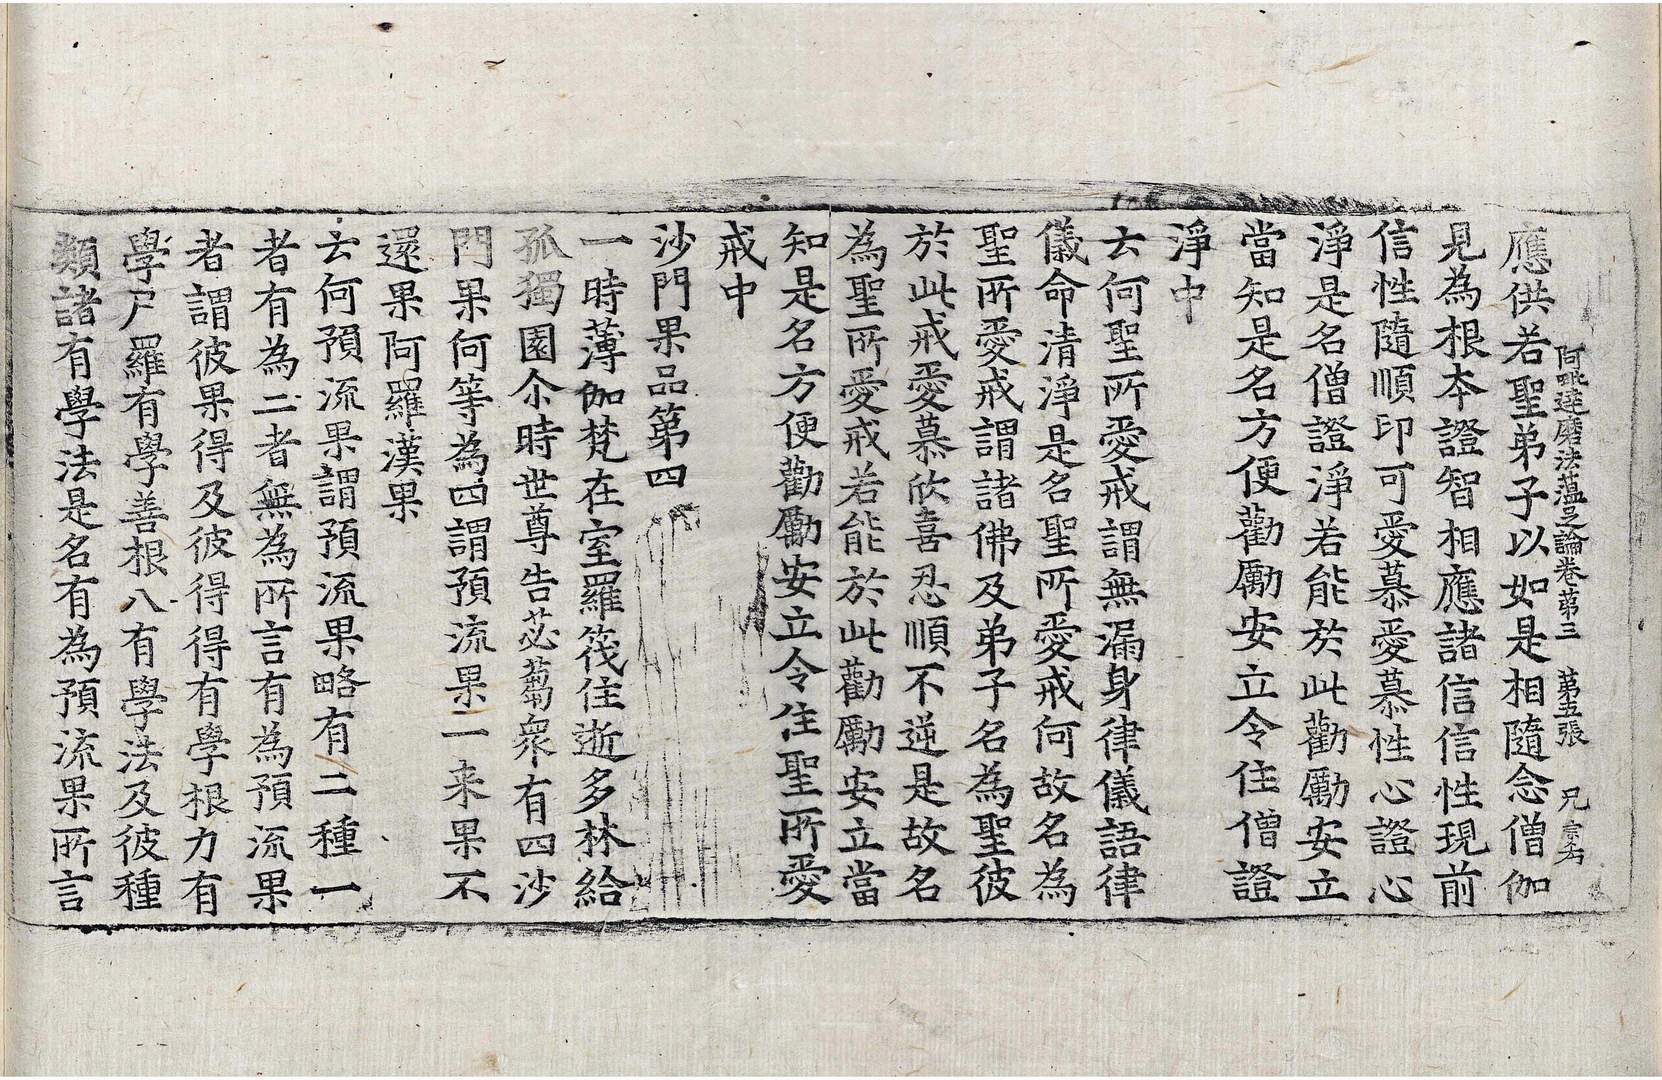 阿毗達磨法蘊足論卷第三　第五張　兄
應供若聖弟子以如是相隨念僧伽
見為根本證智相應諸信信性現前
信性隨順印可愛慕愛慕性心證心
淨是名僧證淨若能於此勸勵安立
當知是名方便勸勵安立令住僧證
淨中
云何聖所愛戒謂無漏身律儀語律
儀命清淨是名聖所愛戒何故名為
聖所愛戒謂諸佛及弟子名為聖彼
於此戒愛慕欣喜忍順不逆是故名
為聖所愛戒若能於此勸勵安立當
知是名方便勸勵安立令住聖所愛
戒中
沙門果品第四
一時薄伽梵在室羅筏住逝多林給
孤獨園尒時世尊告苾蒭衆有四沙
門果何等為四謂預流果一来果不
還果阿羅漢果
云何預流果謂預流果略有二種一
者有為二者無為所言有為預流果
者謂彼果得及彼得得有學根力有
學尸羅有學善根八有學法及彼種
類諸有學法是名有為預流果所言